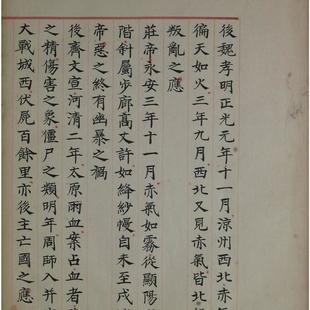 後魏孝明正光元年十一月涼州西北赤氣
徧天如火三年九月西北又見赤氣皆北
叛亂之應
莊帝永安三年十一月赤氣如霧從顯陽
階斜屬步廊高丈許如絳紗幔自未至戌
帝惡之終有幽暴之禍
後齊文宣河清二年太原雨血案占血者
之精傷害之象僵尸之類明年周師入并
大戰城西伏屍百餘里亦後主亡國之應